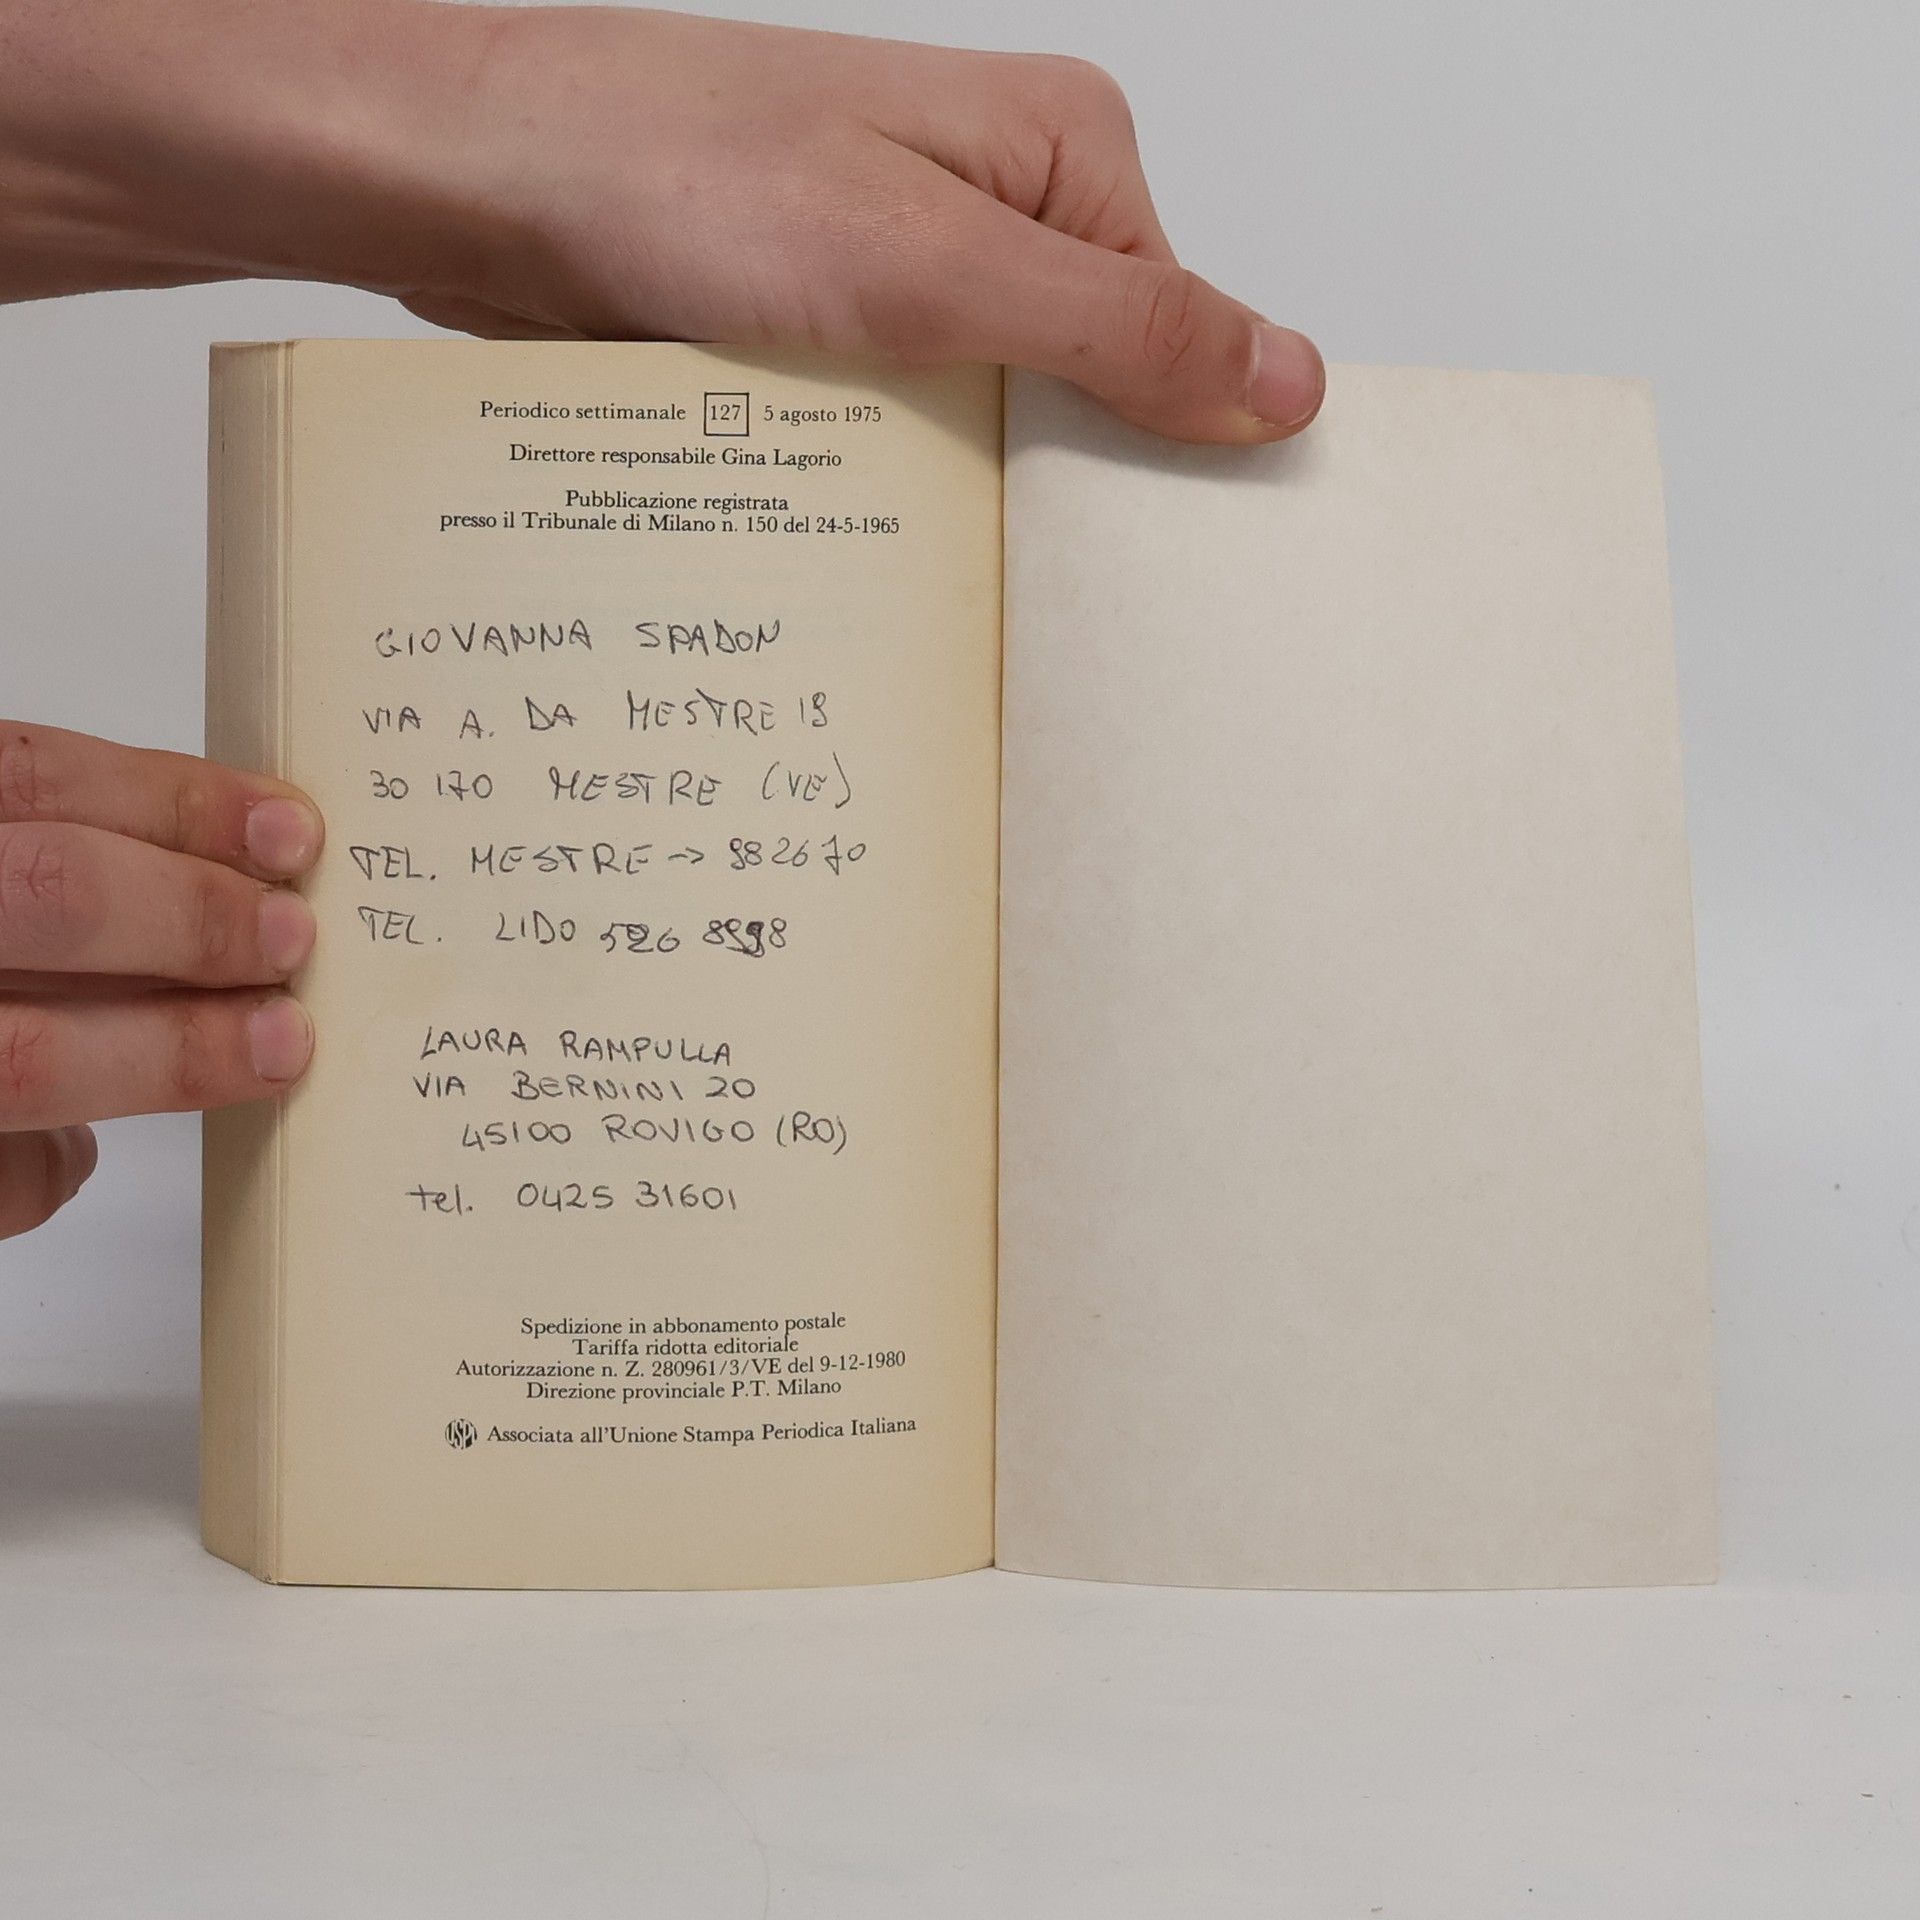 Periodico settimanale 127 5 agosto 1975
Direttore responsabile Gina Lagorio
Pubblicazione registrata
presso il Tribunale di Milano n. 150 del 24-5-1965
GIOVANNA SPADON
VIA A. DA MESTRE 19
30170 MESTRE (VE)
TEL. MESTRE -> 982670
TEL. LIDO 526
LAURA RAMPULLA
VIA BERNINI 20
45100 ROVIGO (RO)
tel. 0425 31601
Spedizione in abbonamento postale
Tariffa ridotta editoriale
Autorizzazione n. Z. 280961/3/VE del 9-12-1980
Direzione provinciale P.T. Milano
USPI Associata all'Unione Stampa Periodica Italiana